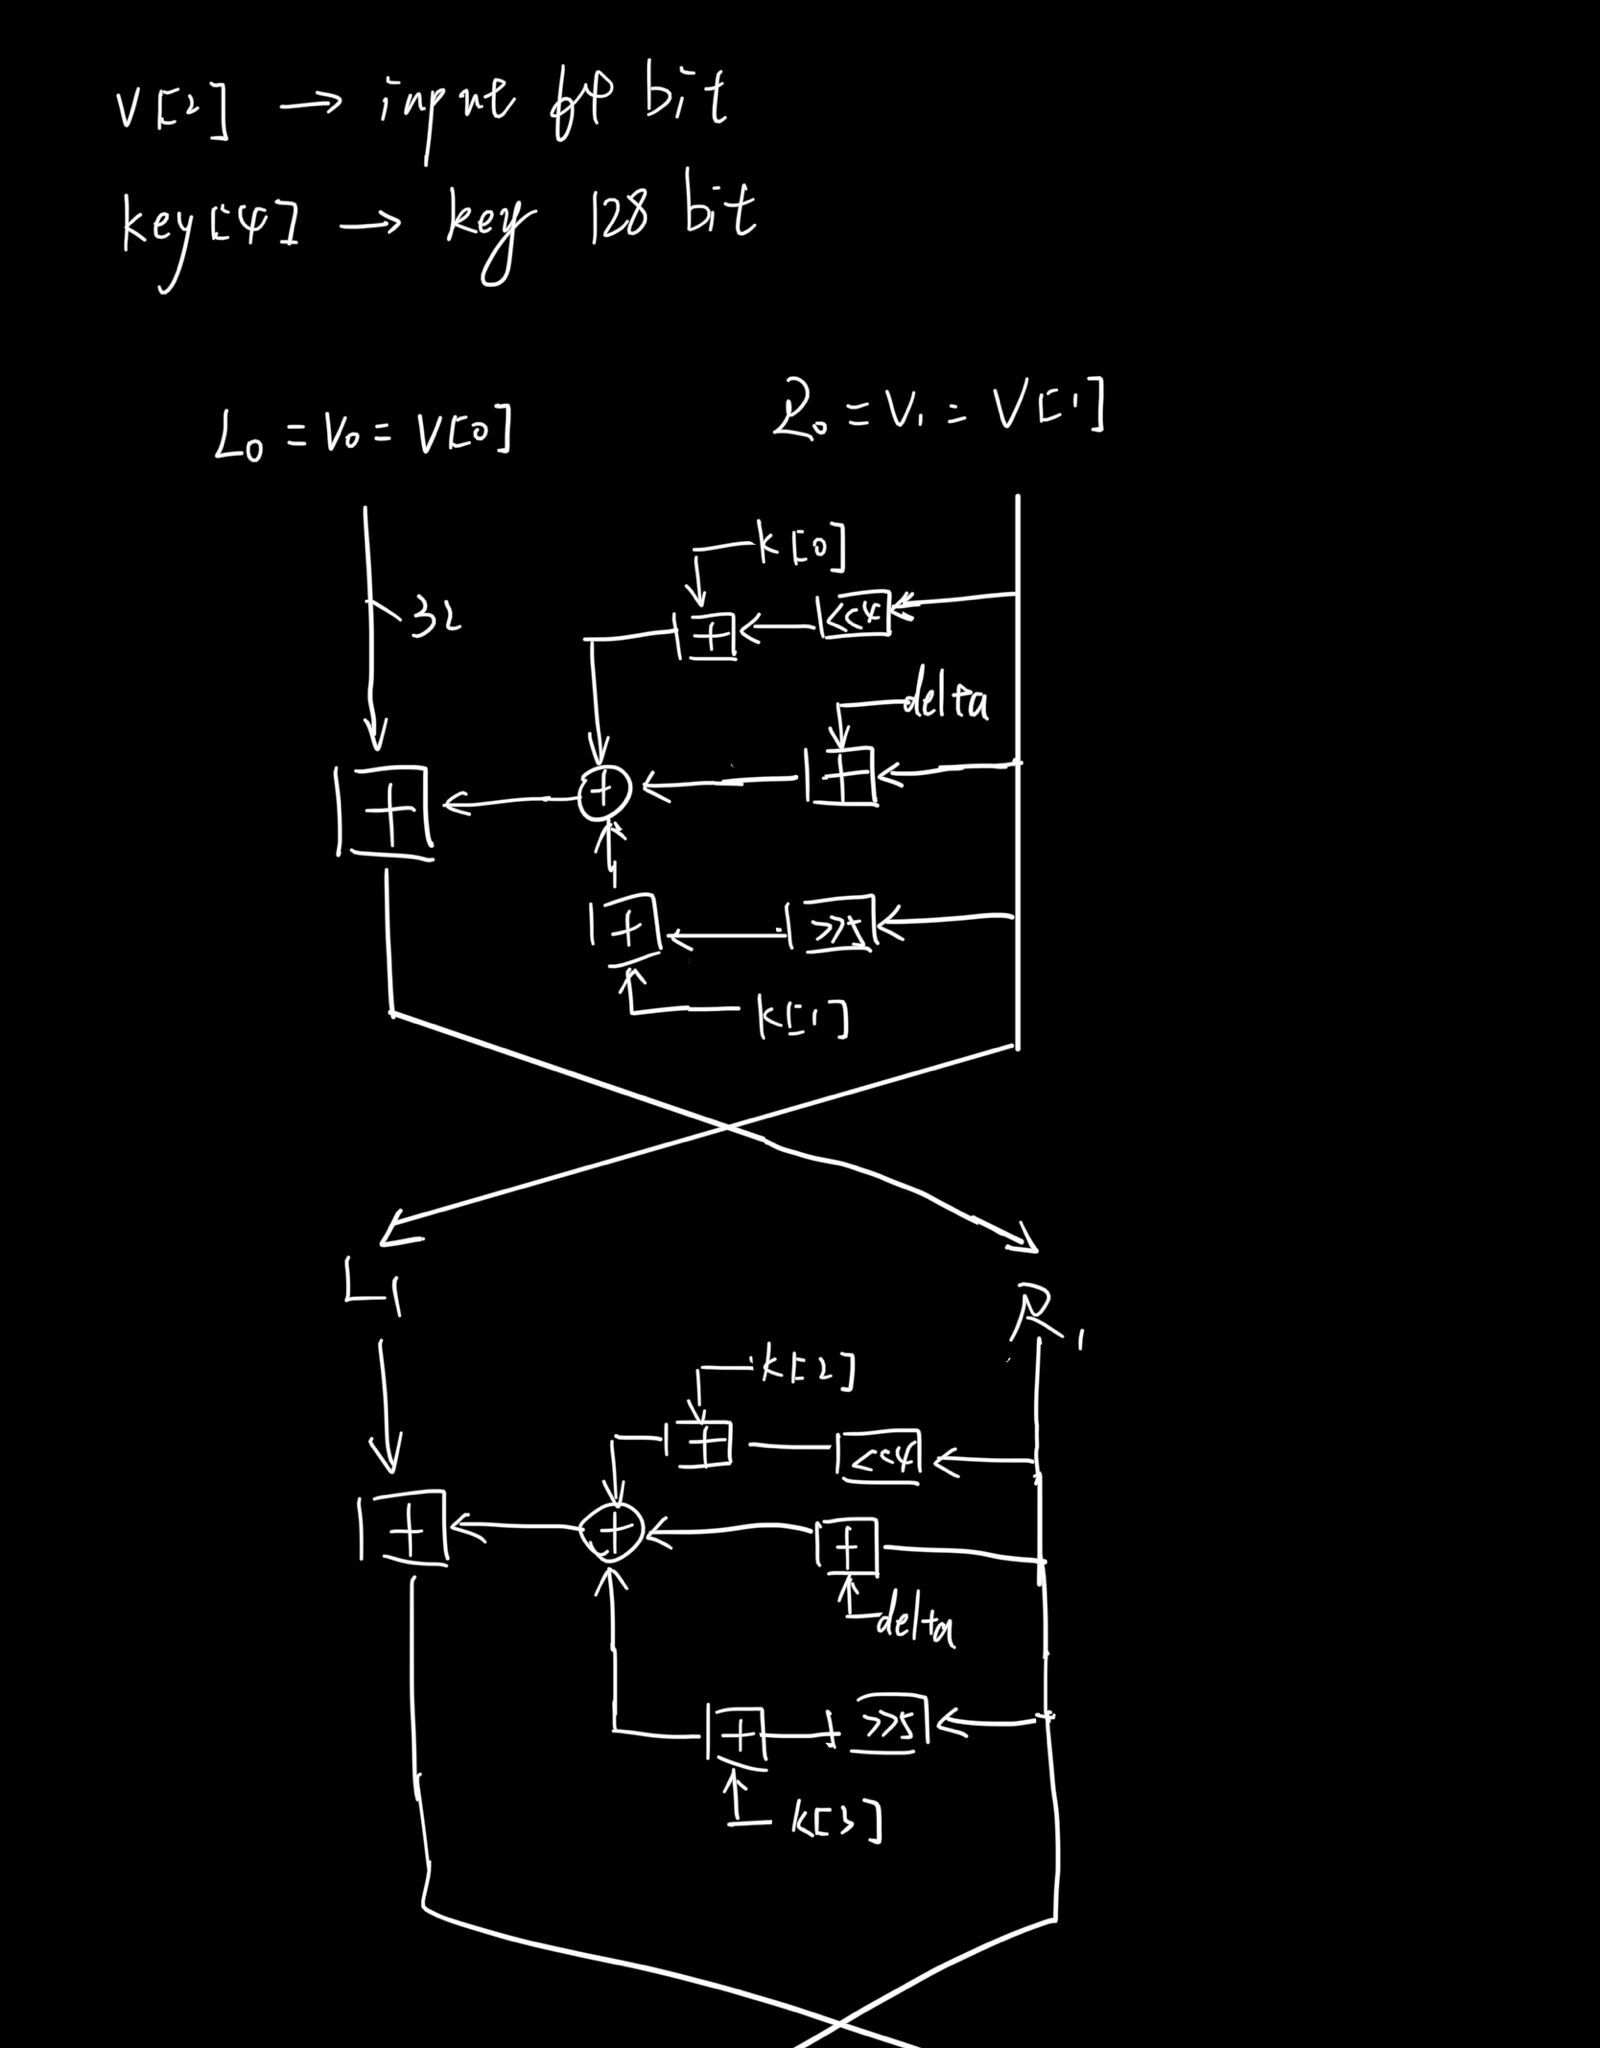 V[2] → input 64 bit
key[4] → key 128 bit
L0 = V0 = V[0]
R0 = V1 = V[1]
32
k[0]
<<4
+
delta
+
+
+
+
>>5
k[1]
L1
R1
k[2]
+
<<4
+
+
+
delta
+
>>5
k[3]